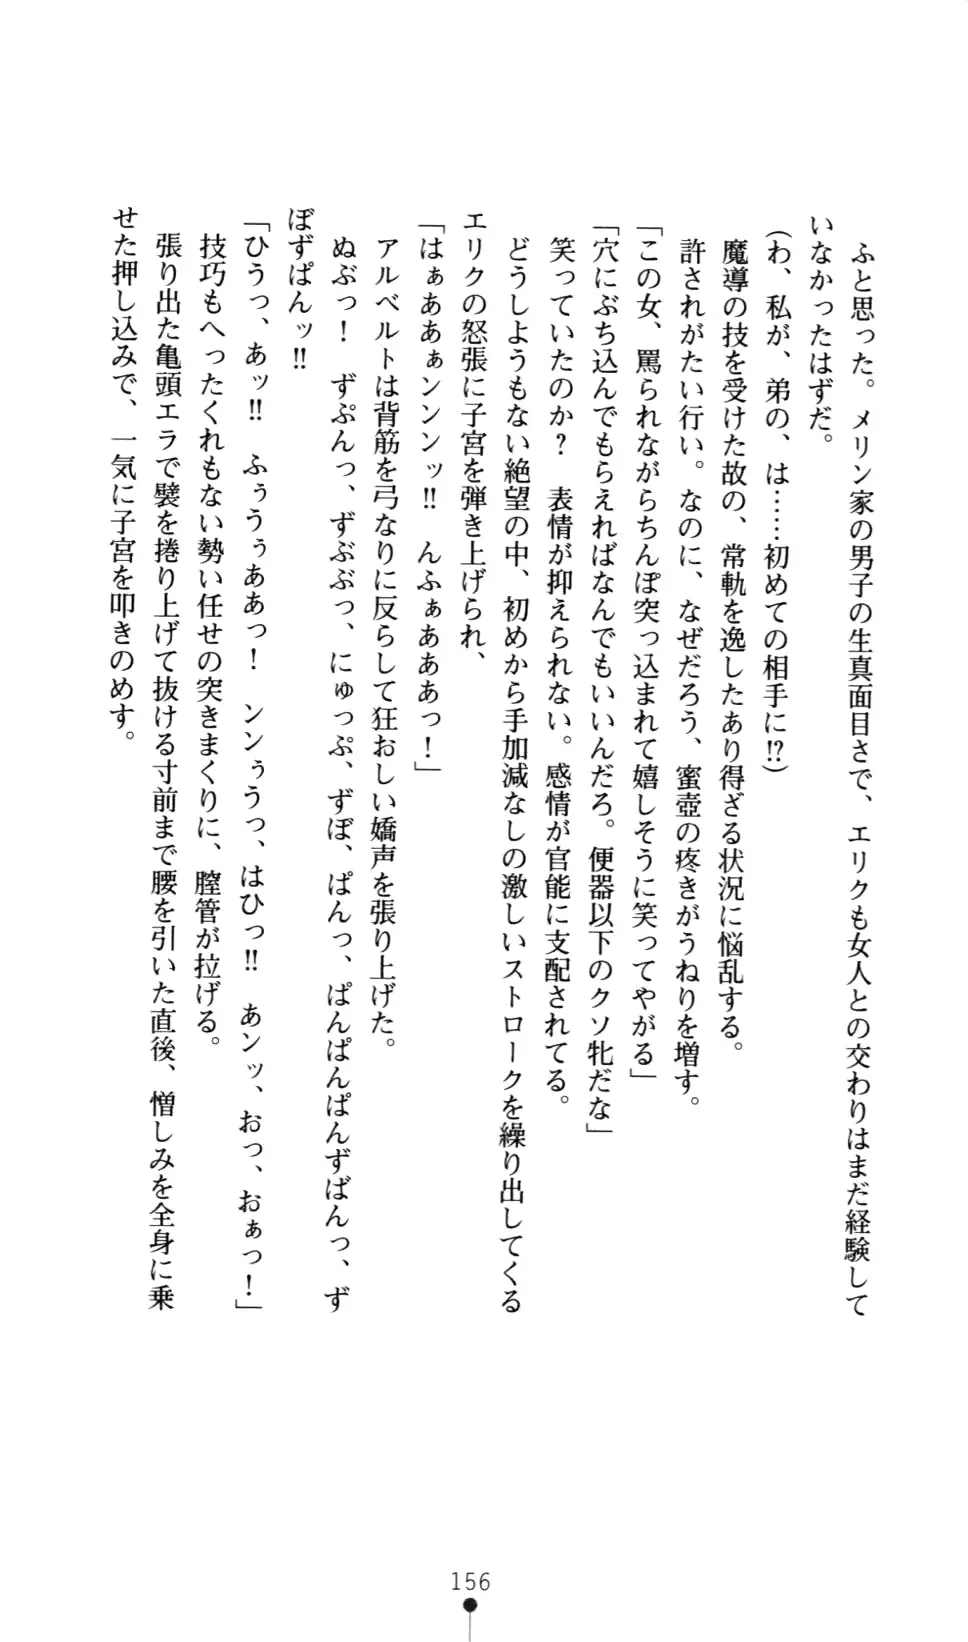 ふと思った。メリン家の男子の生真面目さで、エリクも女人との交わりはまだ経験して
いなかったはずだ。
(わ、私が、弟の、は……初めての相手に!?)
魔導の技を受けた故の、常軌を逸したあり得ざる状況に悩乱する。
許されがたい行い。なのに、なぜだろう、蜜壺の疼きがうねりを増す。
「この女、罵られながらちんぽ突っ込まれて嬉しそうに笑ってやがる」
「穴にぶち込んでもらえればなんでもいいんだろ。便器以下のクソ牝だな」
笑っていたのか?　表情が抑えられない。感情が官能に支配されてる。
どうしようもない絶望の中、初めから手加減なしの激しいストロークを繰り出してくる
エリクの怒張に子宮を弾き上げられ、
「はぁああぁンンンッ!!　んふぁあああっ!」
アルベルトは背筋を弓なりに反らして狂おしい嬌声を張り上げた。
ぬぶっ!　ずぷんっ、ずぶぶっ、にゅっぷ、ずぼ、ぱんっ、ぱんぱんぱんずばんっ、ず
ぼずぱんッ!!
「ひうっ、あッ!!　ふぅうぅああっ!　ンンぅうっ、はひっ!!　あンッ、おっ、おぁっ!」
技巧もへったくれもない勢い任せの突きまくりに、膣管が拉げる。
張り出た亀頭エラで襞を捲り上げて抜ける寸前まで腰を引いた直後、憎しみを全身に乗
せた押し込みで、一気に子宮を叩きのめす。
156